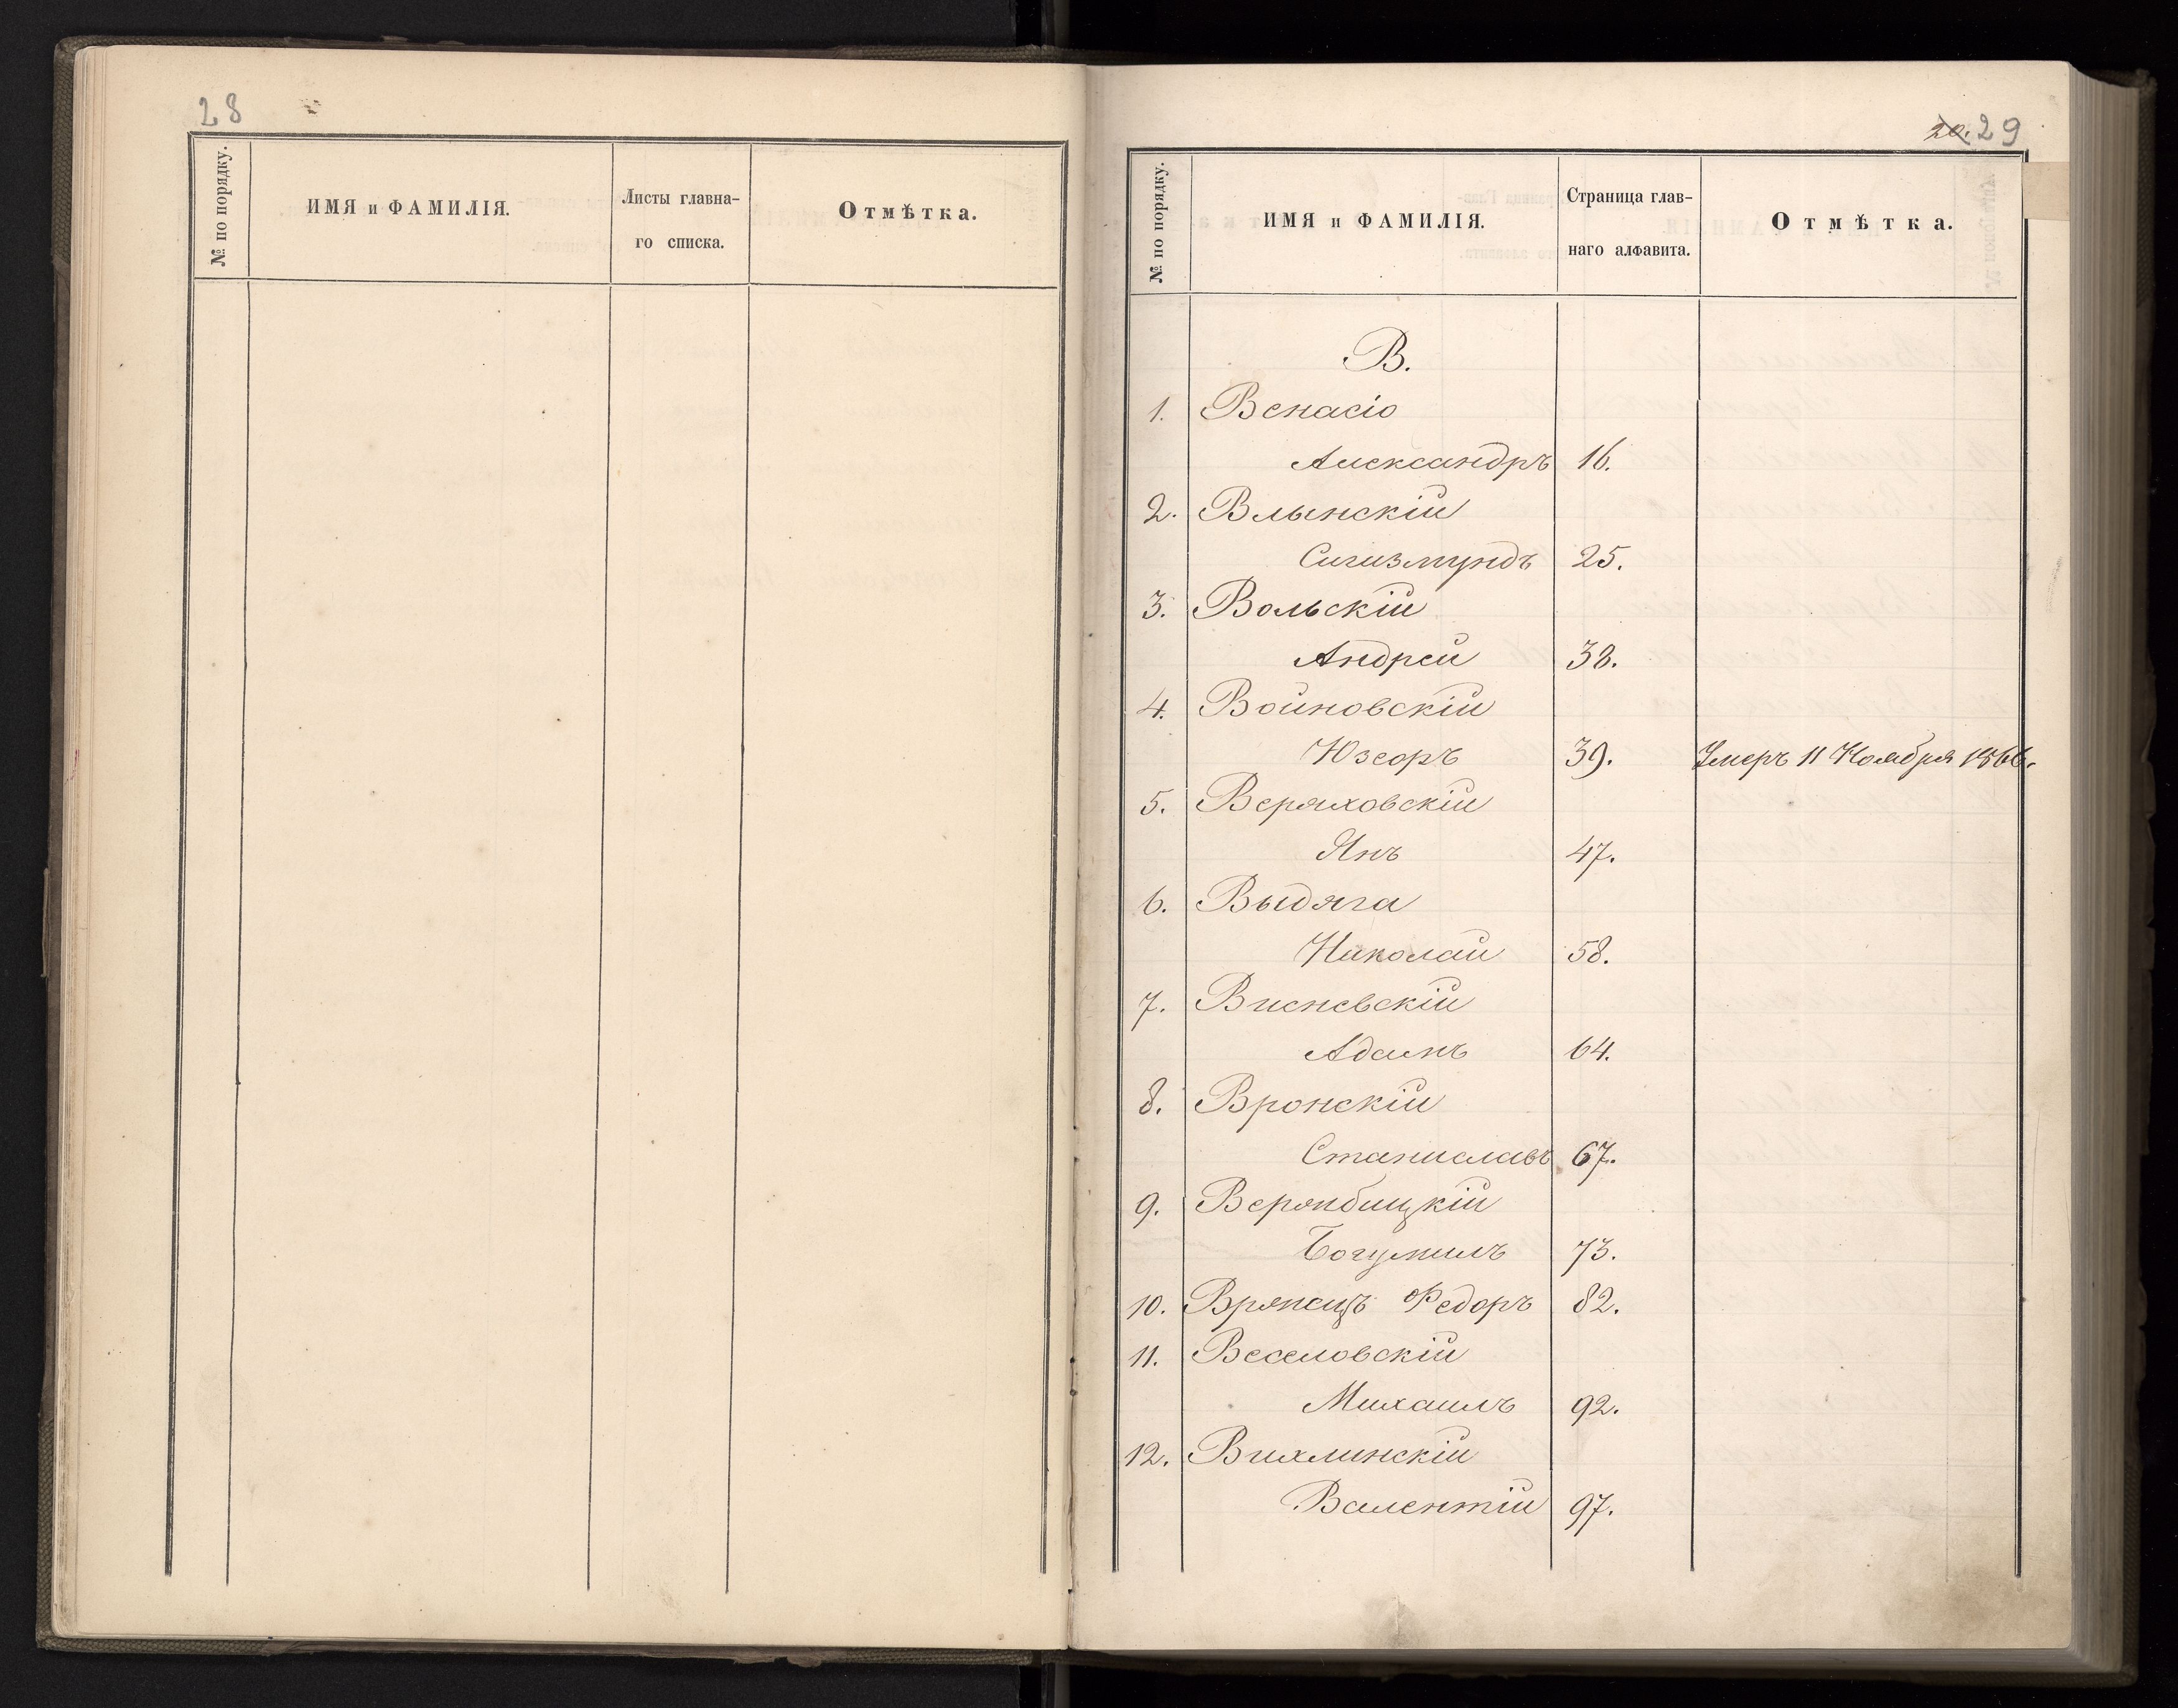 28
№ по порядку.
ИМЯ и ФАМИЛІЯ.
Листы главна-
го списка.
Отмѣтка.
20. 29
№ по порядку.
ИМЯ и ФАМИЛІЯ.
Страница глав-
наго алфавита.
Отмѣтка.
В.
1. Венасіо
Александръ 16.
2. Влынскій
Сигизмундъ 25.
3. Вольскій
Андрей 38.
4. Войновскій
39. Умеръ 11 Ноября 1866.
5. Веряховскій
Янъ 47.
6. Выдяга
Николай 58.
7. Висневскій
Адамъ 64.
8. Вронскій
Станиславъ 67.
9. Верянбицкій
Богумилъ 73.
10. Федоръ 82.
11. Веселовскій
Михаилъ 92.
12. Вихлинскій
Валентій 97.